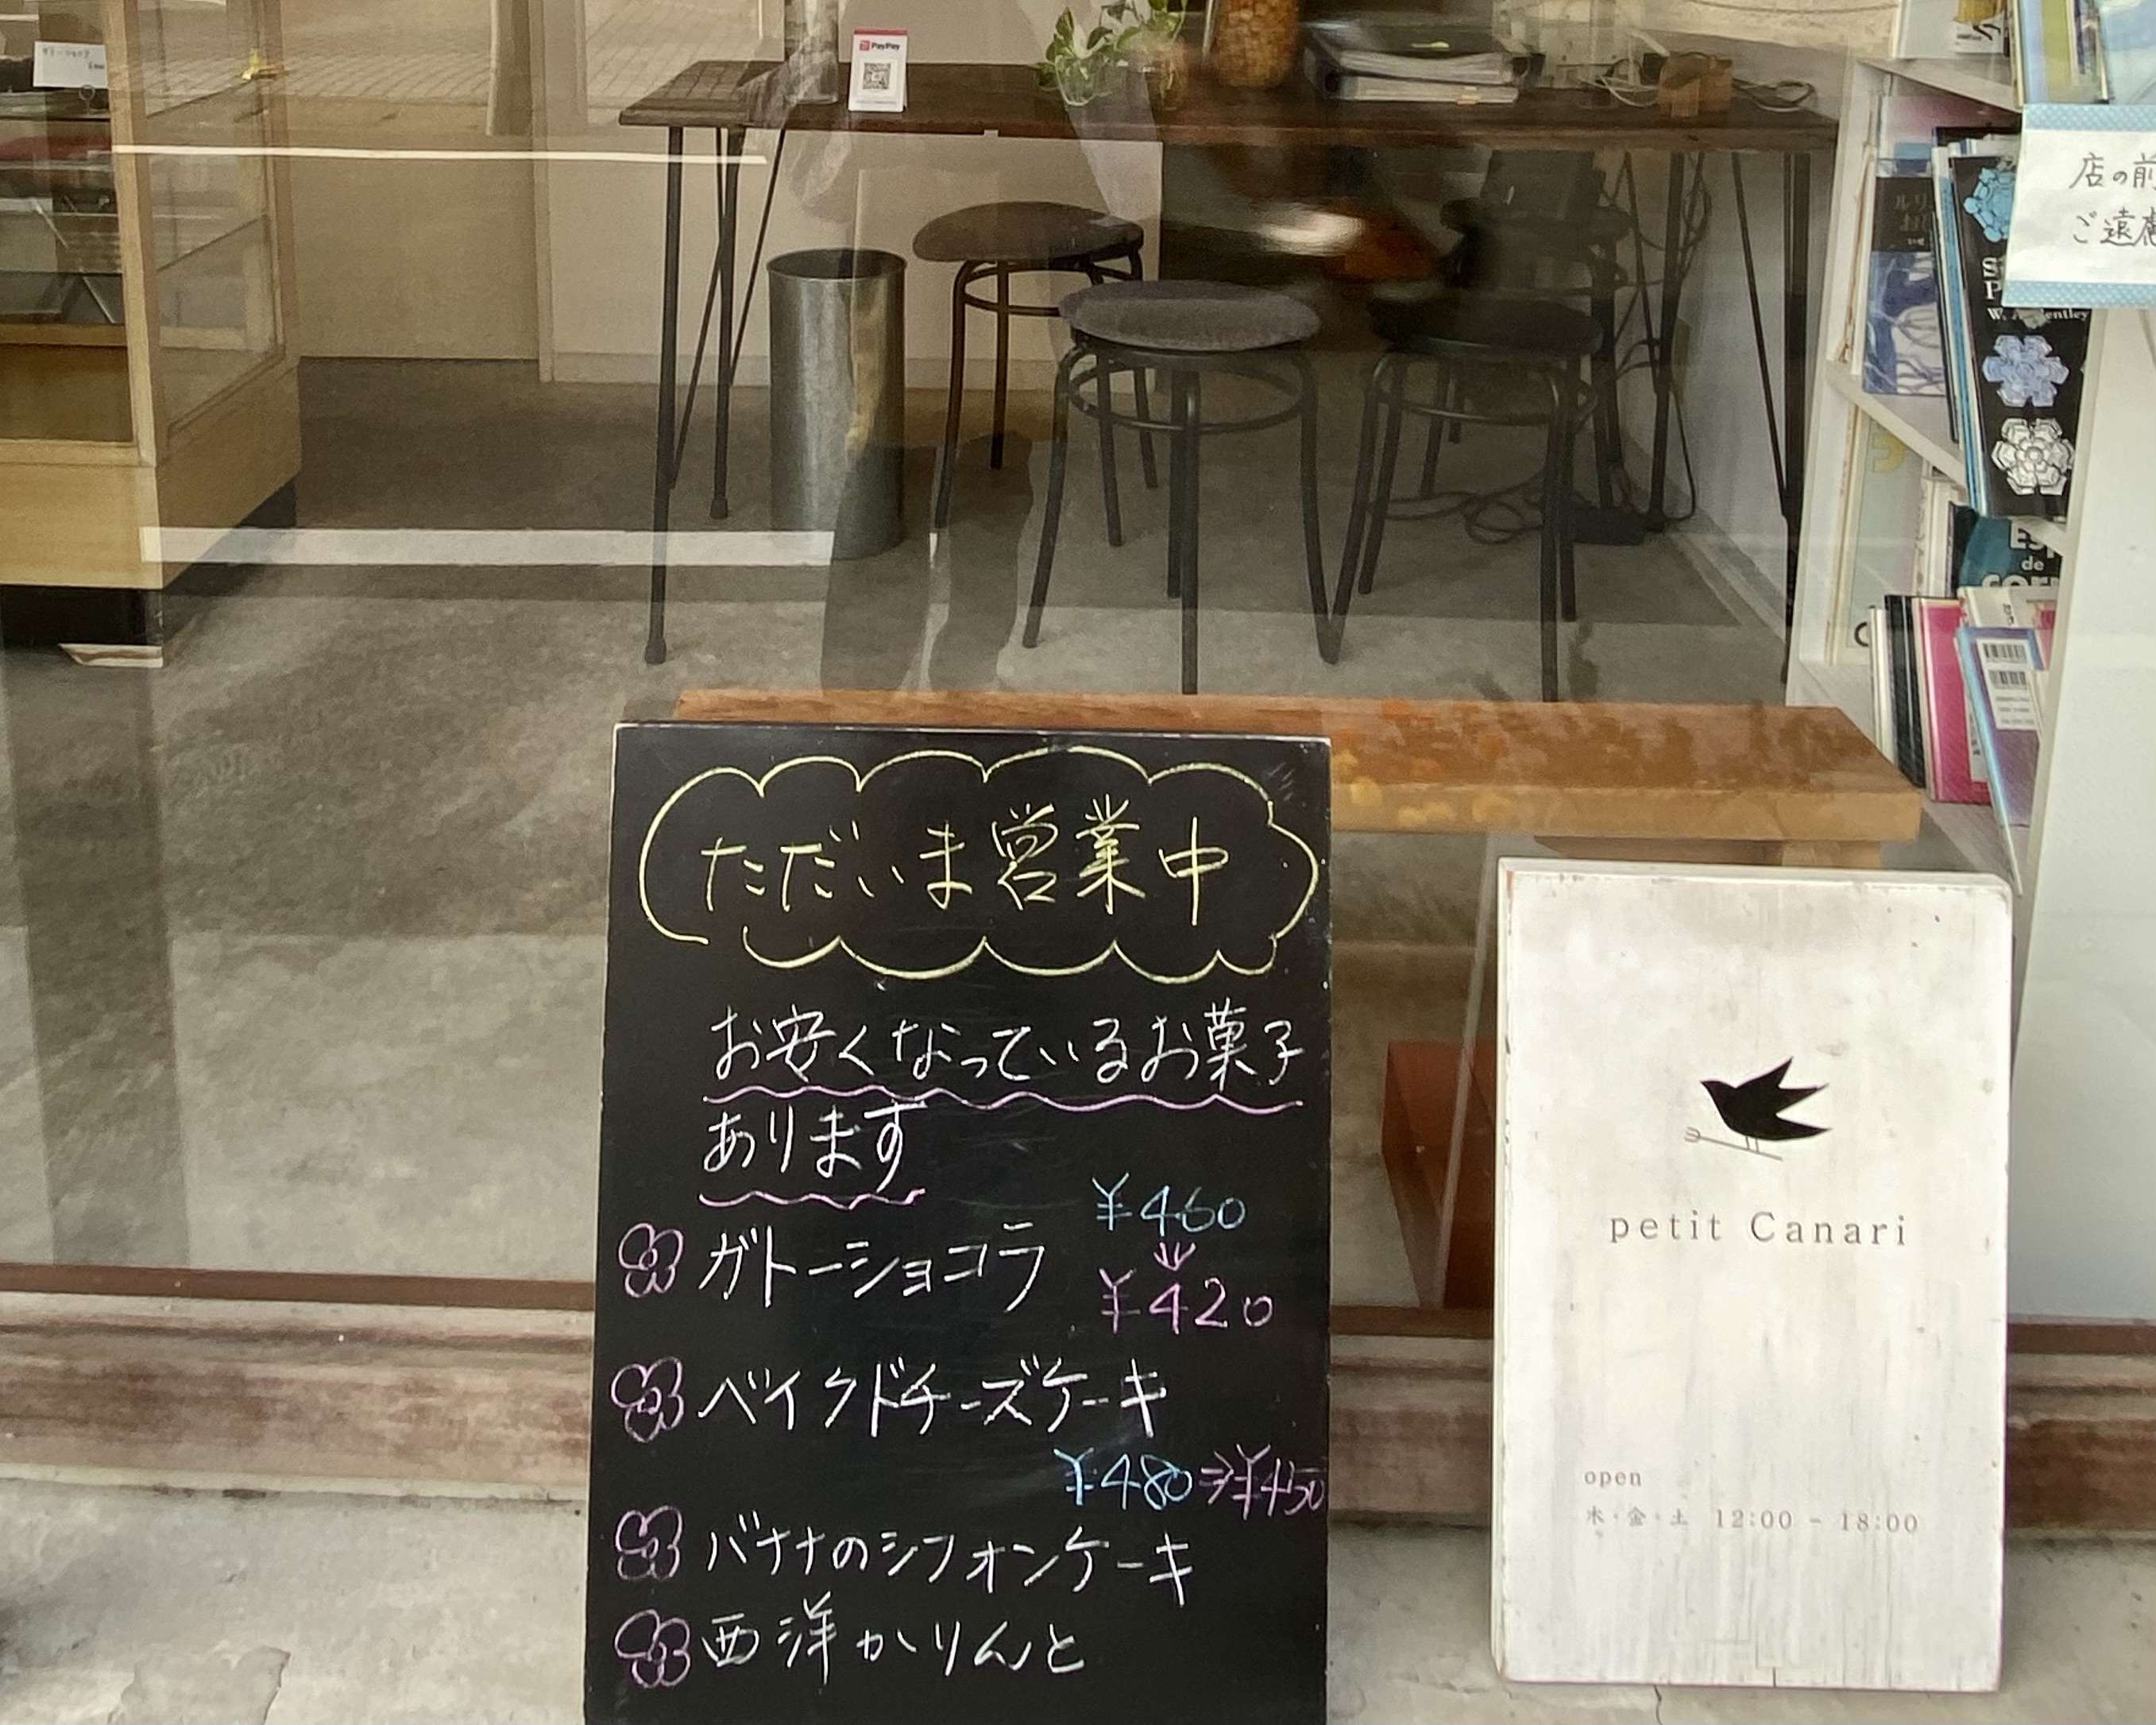 PayPay
店の前
ご遠慮
ただいま営業中
お安くなっているお菓子
あります
¥460
ガトーショコラ
¥420
ベイクドチーズケーキ
¥480⇒¥450
バナナのシフォンケーキ
西洋かりんと
petit Canari
open
木・金・土 12:00 - 18:00